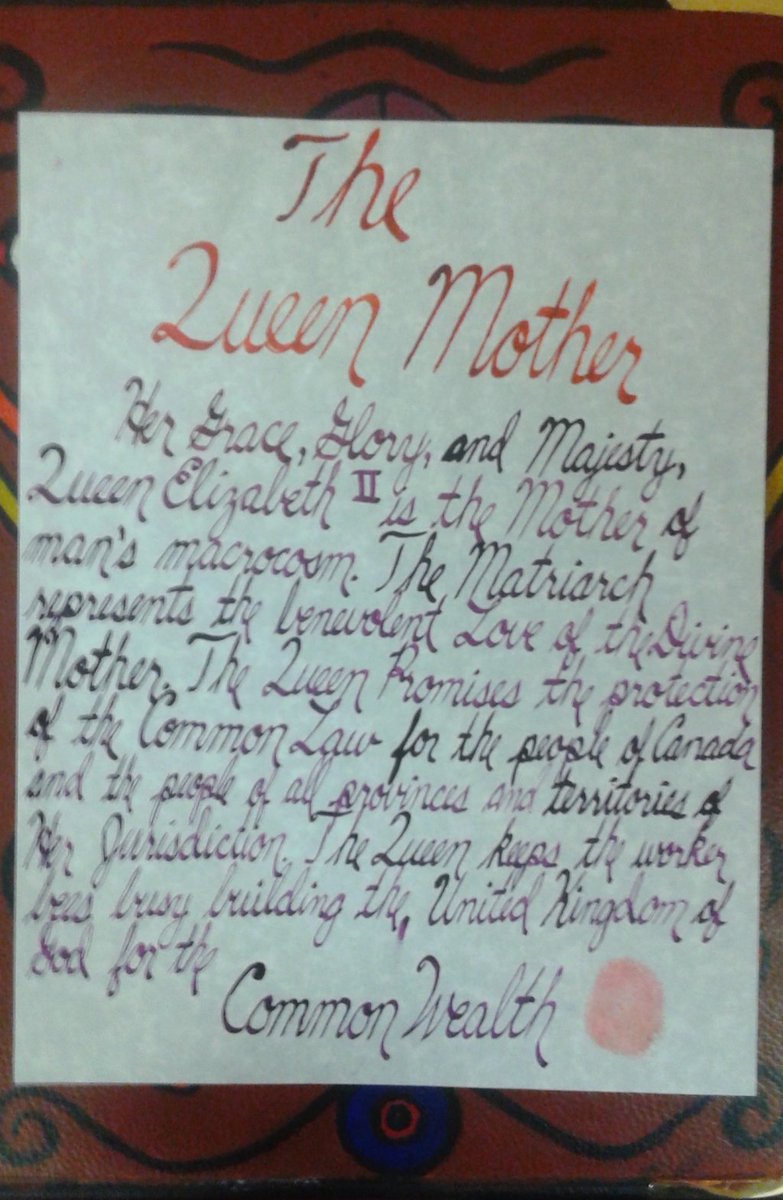 The
Queen Mother
Her Grace, Glory, and Majesty,
Queen Elizabeth II is the Mother of
man's macrocosm. The Matriarch
represents the benevolent Love of the Divine
Mother. The Queen Promises the protection
of the Common Law for the people of Canada
and the people of all provinces and territories of
Her Jurisdiction. The Queen keeps the worker
bees busy building the, United Kingdom of
God for the
Common Wealth